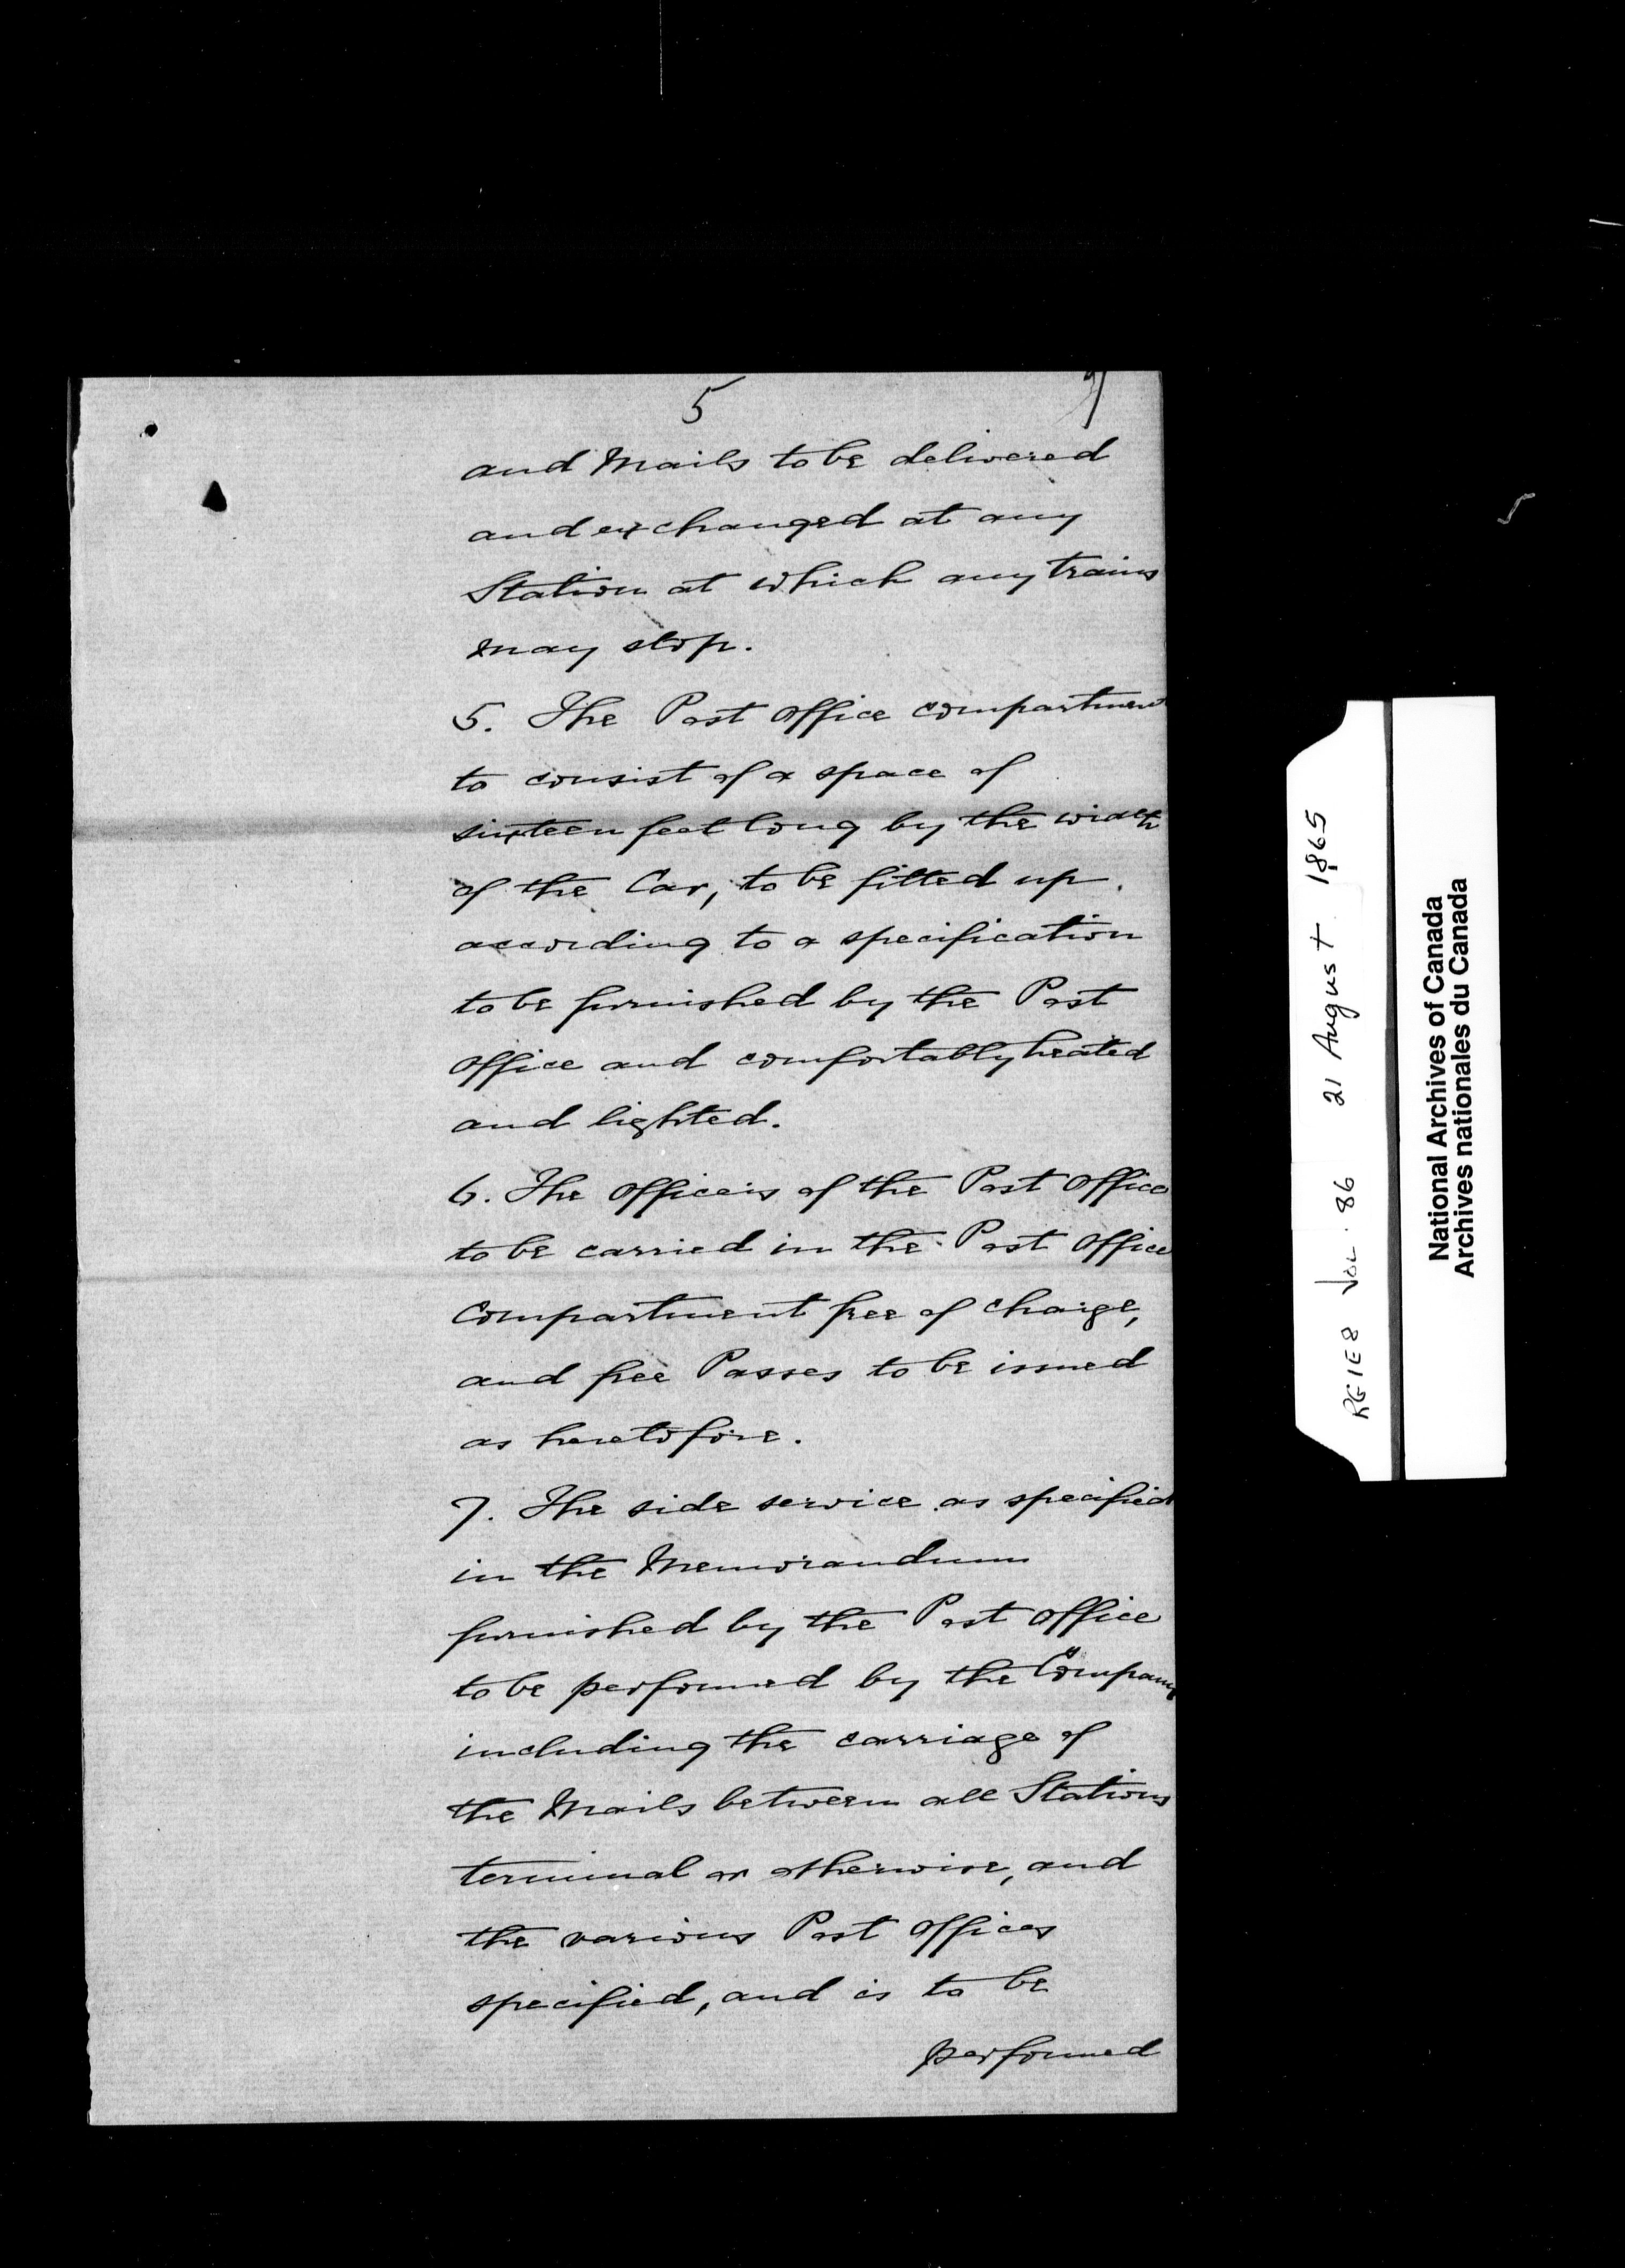 5
and Mails to be delivered
and exchanged at any
Station at which any trains
may stop.
5. The Post Office compartment
to consist of a space of
sixteen feet long by the width
of the Car, to be fitted up
according to a specification
to be furnished by the Post
Office and comfortably heated
and lighted.
6. The Officers of the Post Office
to be carried in the Post Office
Compartment free of charge,
and free Passes to be issued
as heretofore.
7. The side service as specified
in the Memorandum
furnished by the Post Office
to be performed by the Company
including the carriage of
the Mails between all Stations
terminal or otherwise, and
the various Post Offices
specified, and is to be
performed
RG1E8 VOL. 86 21 August 1865
National Archives of Canada
Archives nationales du Canada